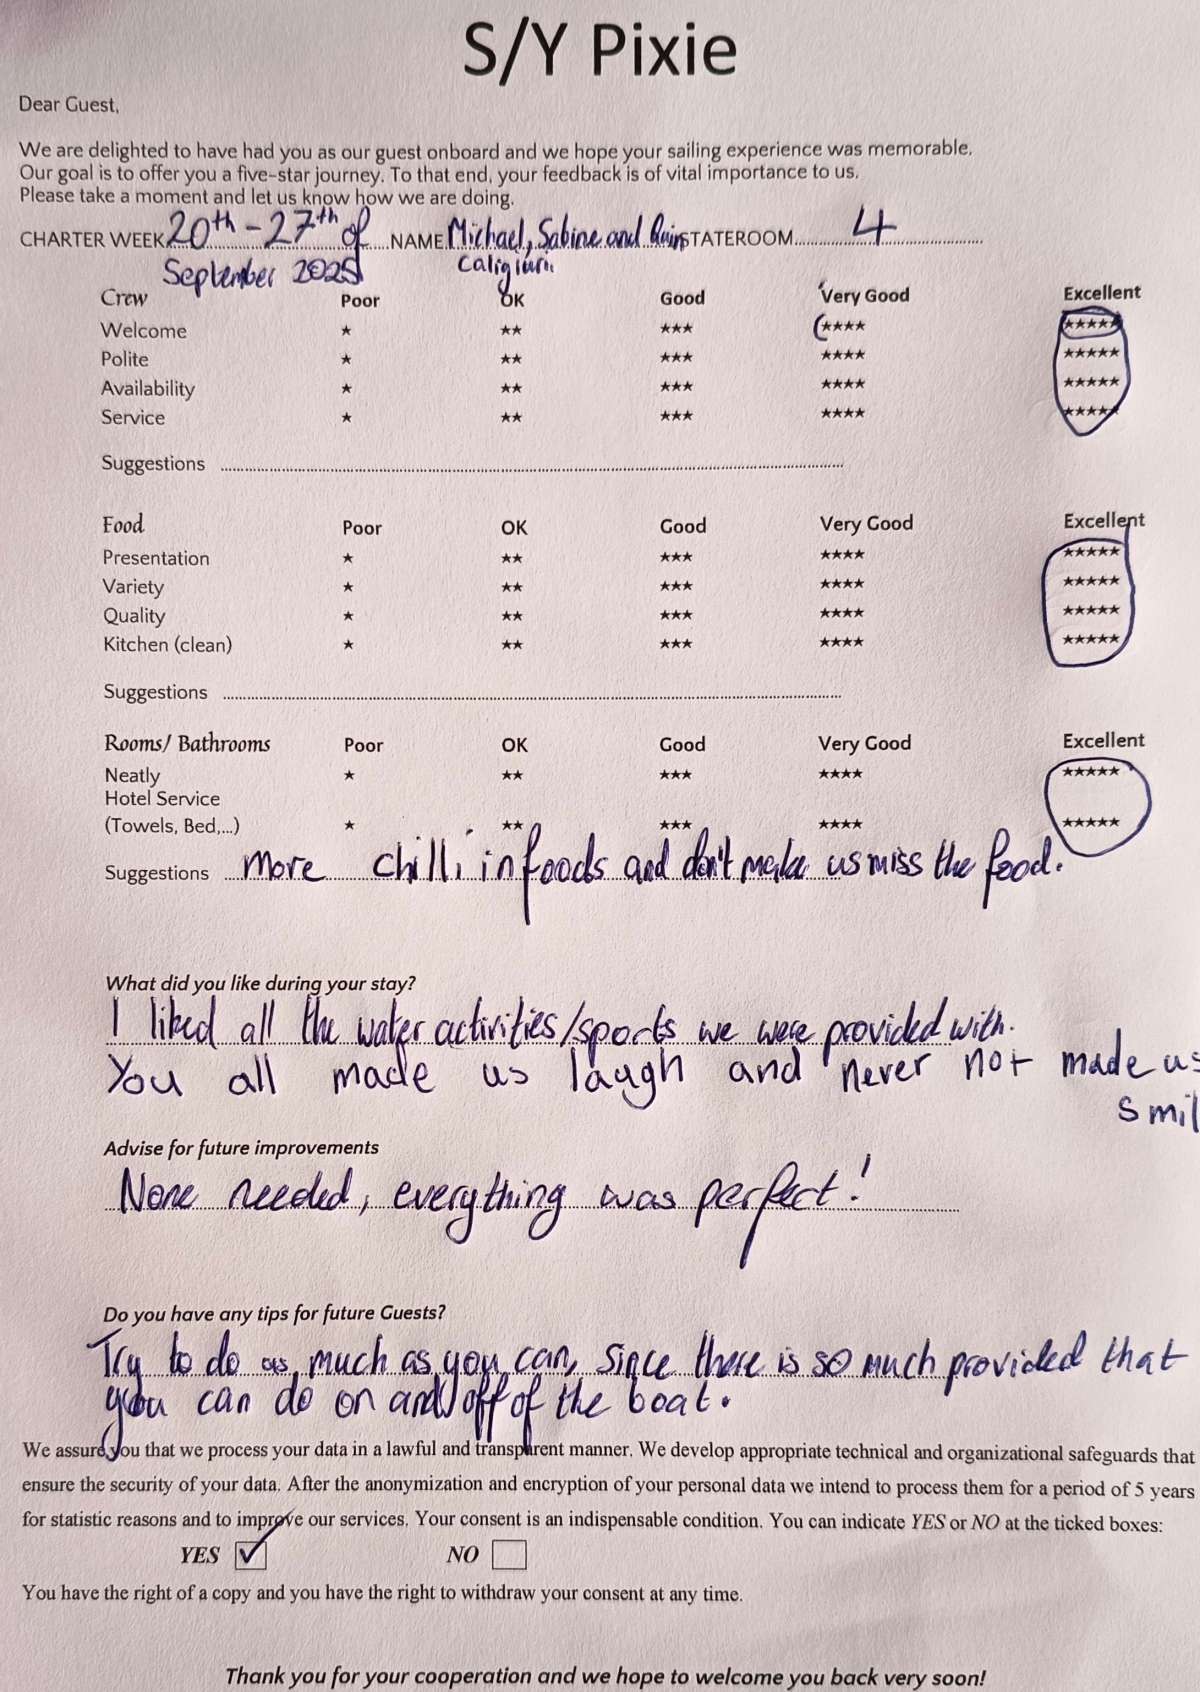 S/Y Pixie
Dear Guest,
We are delighted to have had you as our guest onboard and we hope your sailing experience was memorable.
Our goal is to offer you a five-star journey. To that end, your feedback is of vital importance to us.
Please take a moment and let us know how we are doing.
CHARTER WEEK 20th - 27th of NAME Michael, Sabine and STATEROOM 4
September 2025
Crew Poor OK Good Very Good Excellent
Welcome ★ ★★ ★★★ ★★★★ ★★★★★
Polite ★ ★★ ★★★ ★★★★ ★★★★★
Availability ★ ★★ ★★★ ★★★★ ★★★★★
Service ★ ★★ ★★★ ★★★★ ★★★★★
Suggestions
Food Poor OK Good Very Good Excellent
Presentation ★ ★★ ★★★ ★★★★ ★★★★★
Variety ★ ★★ ★★★ ★★★★ ★★★★★
Quality ★ ★★ ★★★ ★★★★ ★★★★★
Kitchen (clean) ★ ★★ ★★★ ★★★★ ★★★★★
Suggestions
Rooms/ Bathrooms Poor OK Good Very Good Excellent
Neatly ★ ★★ ★★★ ★★★★ ★★★★★
Hotel Service
(Towels, Bed,...) ★ ★★ ★★★ ★★★★ ★★★★★
Suggestions more chilli in foods and don't make us miss the food.
What did you like during your stay?
I liked all the water activities/sports we were provided with.
You all made us laugh and never not made us
smil
Advise for future improvements
None needed, everything was perfect!
Do you have any tips for future Guests?
Try to do as much as you can, since there is so much provided that
you can do on and/off of the boat.
We assure you that we process your data in a lawful and transparent manner. We develop appropriate technical and organizational safeguards that
ensure the security of your data. After the anonymization and encryption of your personal data we intend to process them for a period of 5 years
for statistic reasons and to improve our services. Your consent is an indispensable condition. You can indicate YES or NO at the ticked boxes:
YES ☑ NO ☐
You have the right of a copy and you have the right to withdraw your consent at any time.
Thank you for your cooperation and we hope to welcome you back very soon!